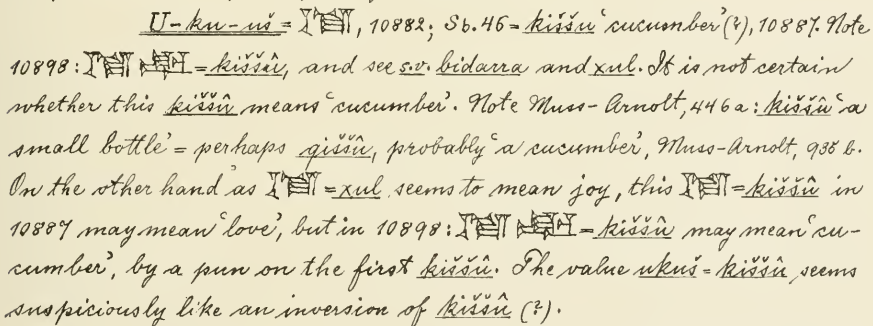 U-ku-uš = , 10882; Sb. 46 = kiššu ‘cucumber’ (?), 10887. Note
10898: = kiššû, and see s.v. bidarra and xul. It is not certain
whether this kiššû means ‘cucumber’. Note Muss-Arnolt, 446 a: kiššû ‘a
small bottle’ = perhaps giššû, probably ‘a cucumber’, Muss-Arnolt, 935 b.
On the other hand as = xul seems to mean joy, this = kiššû in
10887 may mean ‘love’, but in 10898: = kiššû may mean ‘cu-
cumber’, by a pun on the first kiššû. The value ukuš = kiššû seems
suspiciously like an inversion of kiššû (?).